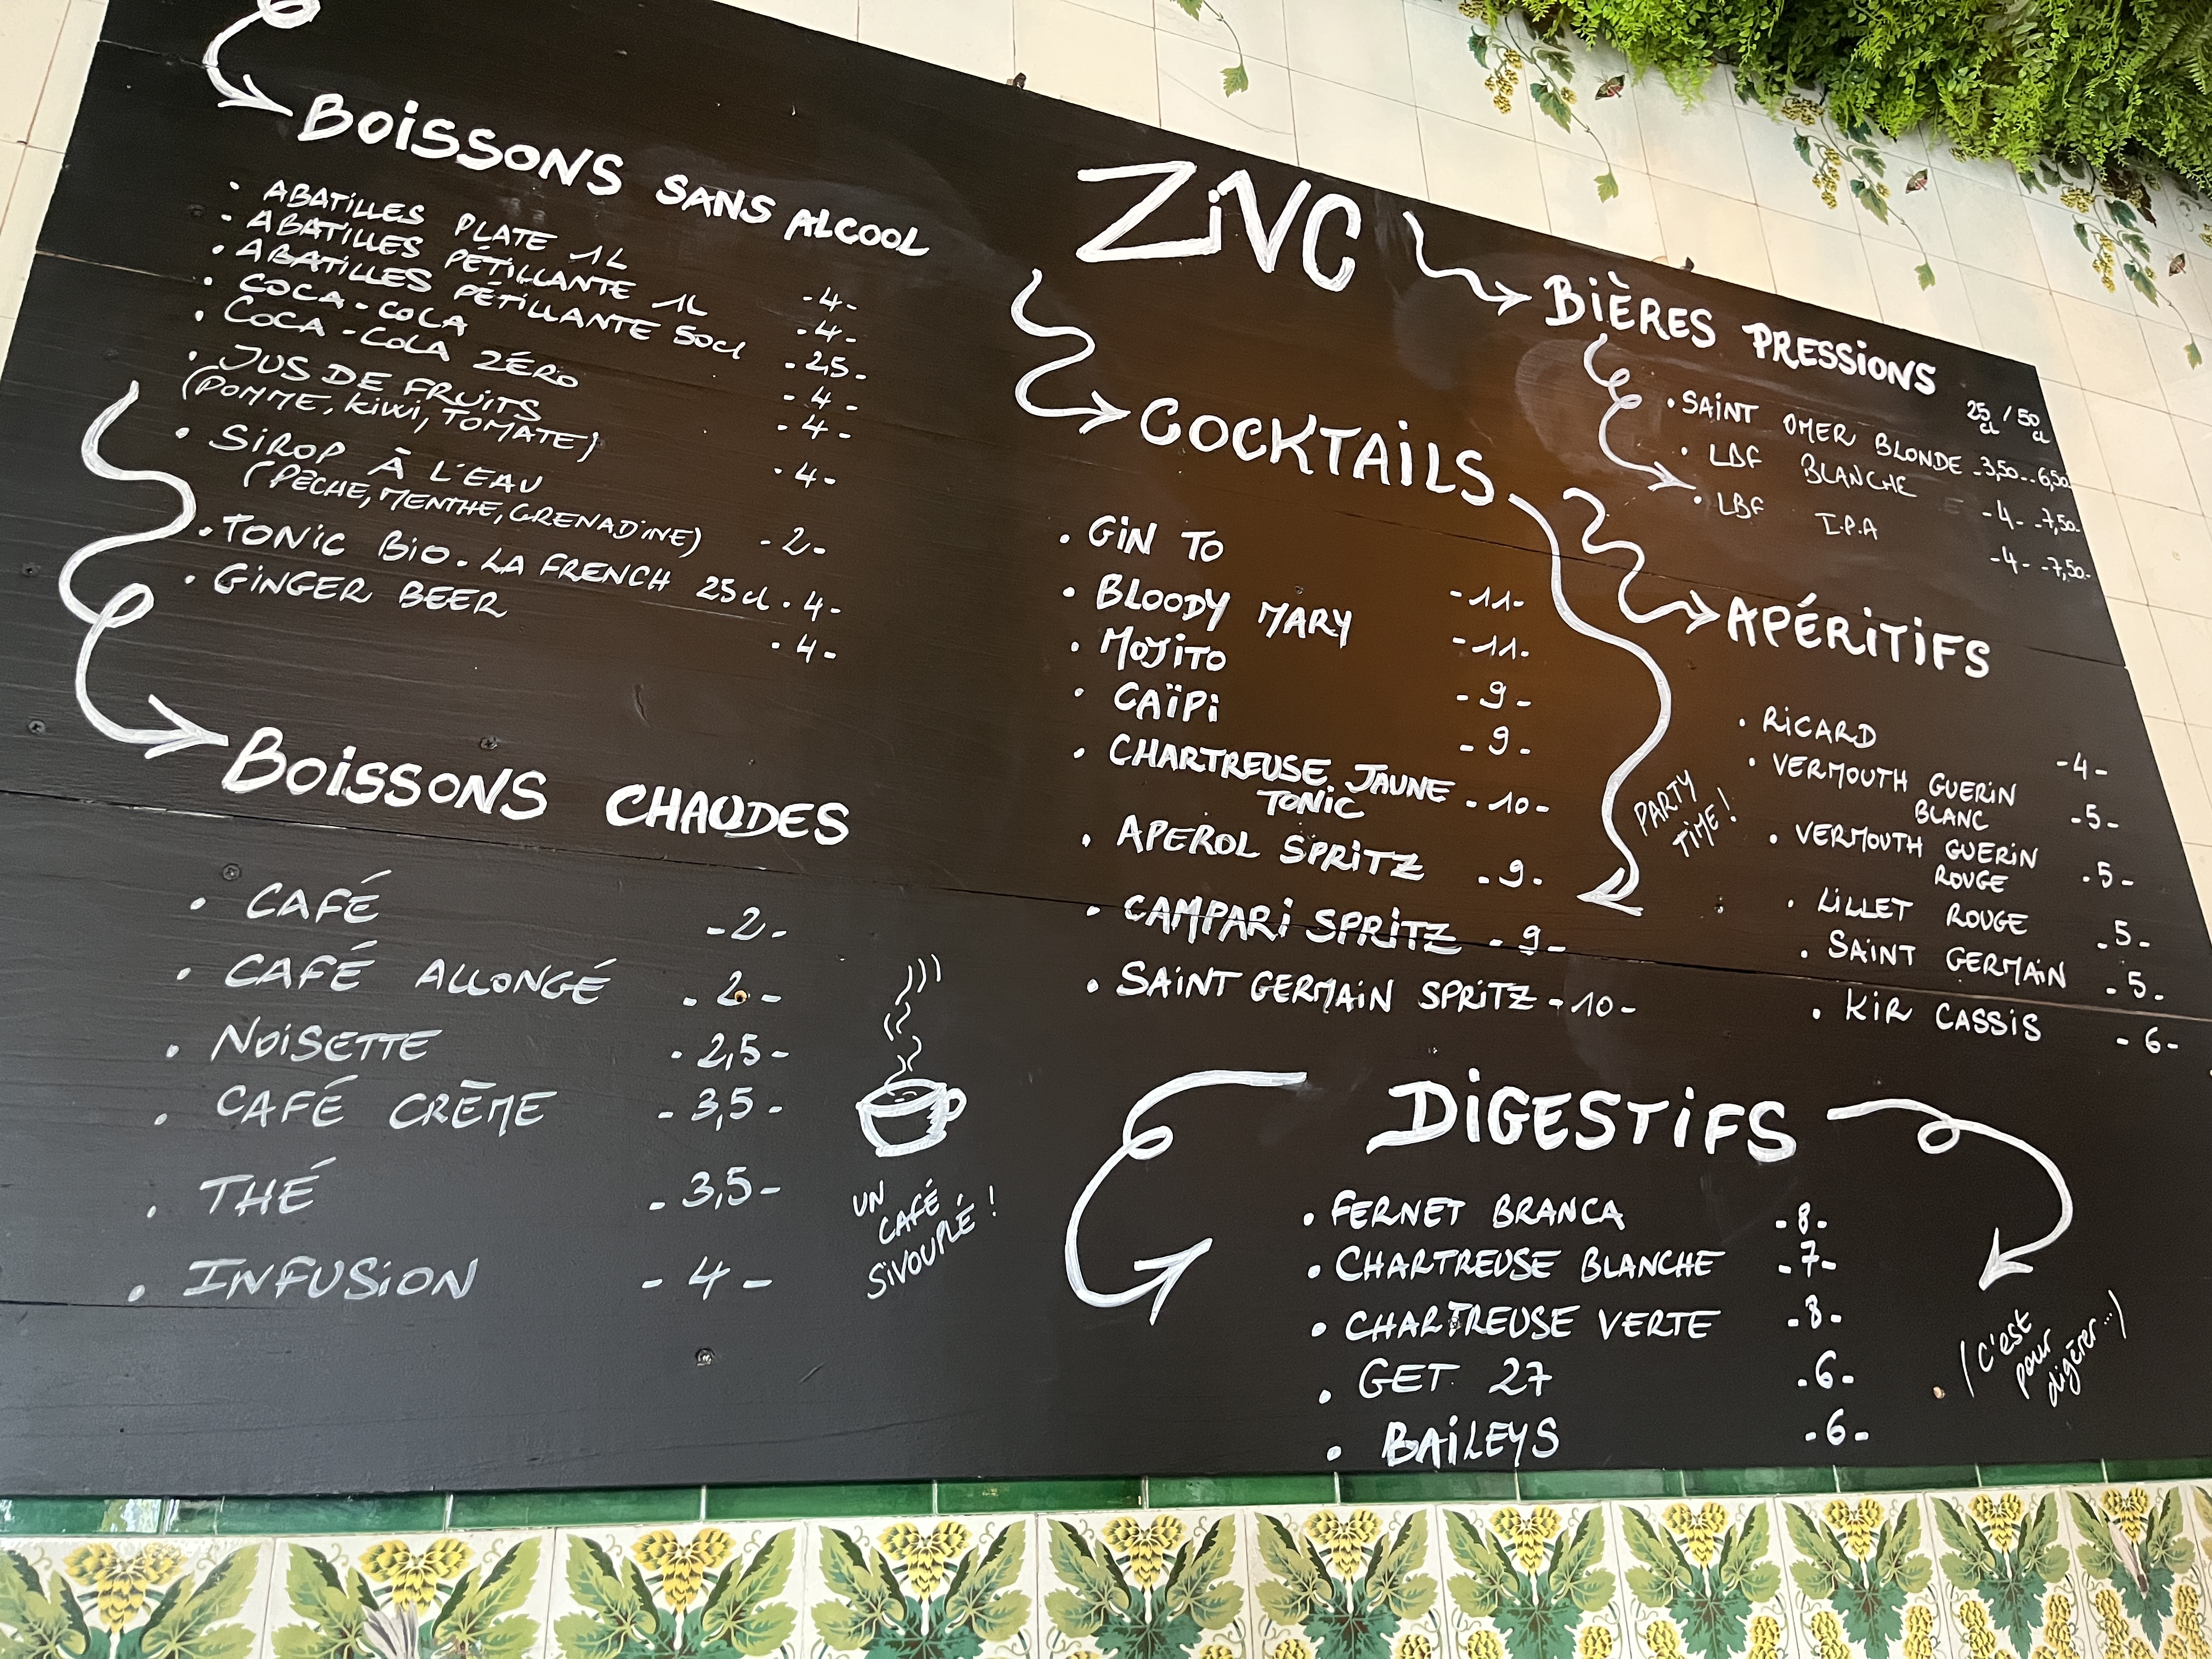 BOISSONS SANS ALCOOL
• ABATILLES PLATE 1L -4-
• ABATILLES PÉTILLANTE 1L -4-
• ABATILLES PÉTILLANTE 50cl -2,5-
• COCA-COLA -4-
• COCA-COLA ZÉRO -4-
• JUS DE FRUITS -4-
(POMME, KIWI, TOMATE)
• SIROP À L'EAU -2-
(PÊCHE, MENTHE, GRENADINE)
• TONIC BIO. LA FRENCH 25cl -4-
• GINGER BEER -4-
BOISSONS CHAUDES
• CAFÉ -2-
• CAFÉ ALLONGÉ -2-
• NOISETTE -2,5-
• CAFÉ CRÈME -3,5-
• THÉ -3,5-
• INFUSION -4-
UN
CAFÉ
SIVOUPLÉ!
ZINC
COCKTAILS
• GIN TO -11-
• BLOODY MARY -11-
• MOJITO -9-
• CAÏPI -9-
• CHARTREUSE JAUNE -10-
TONIC
• APEROL SPRITZ -9-
• CAMPARI SPRITZ -9-
• SAINT GERMAIN SPRITZ -10-
PARTY
TIME!
BIÈRES PRESSIONS
25 cl / 50 cl
• SAINT OMER BLONDE -3,50- -6,50-
• LBF BLANCHE -4- -7,50-
• LBF I.P.A -4- -7,50-
APÉRITIFS
• RICARD -4-
• VERMOUTH GUERIN
BLANC -5-
• VERMOUTH GUERIN
ROUGE -5-
• LILLET ROUGE -5-
• SAINT GERMAIN -5-
• KIR CASSIS -6-
DIGESTIFS
• FERNET BRANCA -8-
• CHARTREUSE BLANCHE -7-
• CHARTREUSE VERTE -8-
• GET 27 -6-
• BAILEYS -6-
(C'est
pour
digérer...)